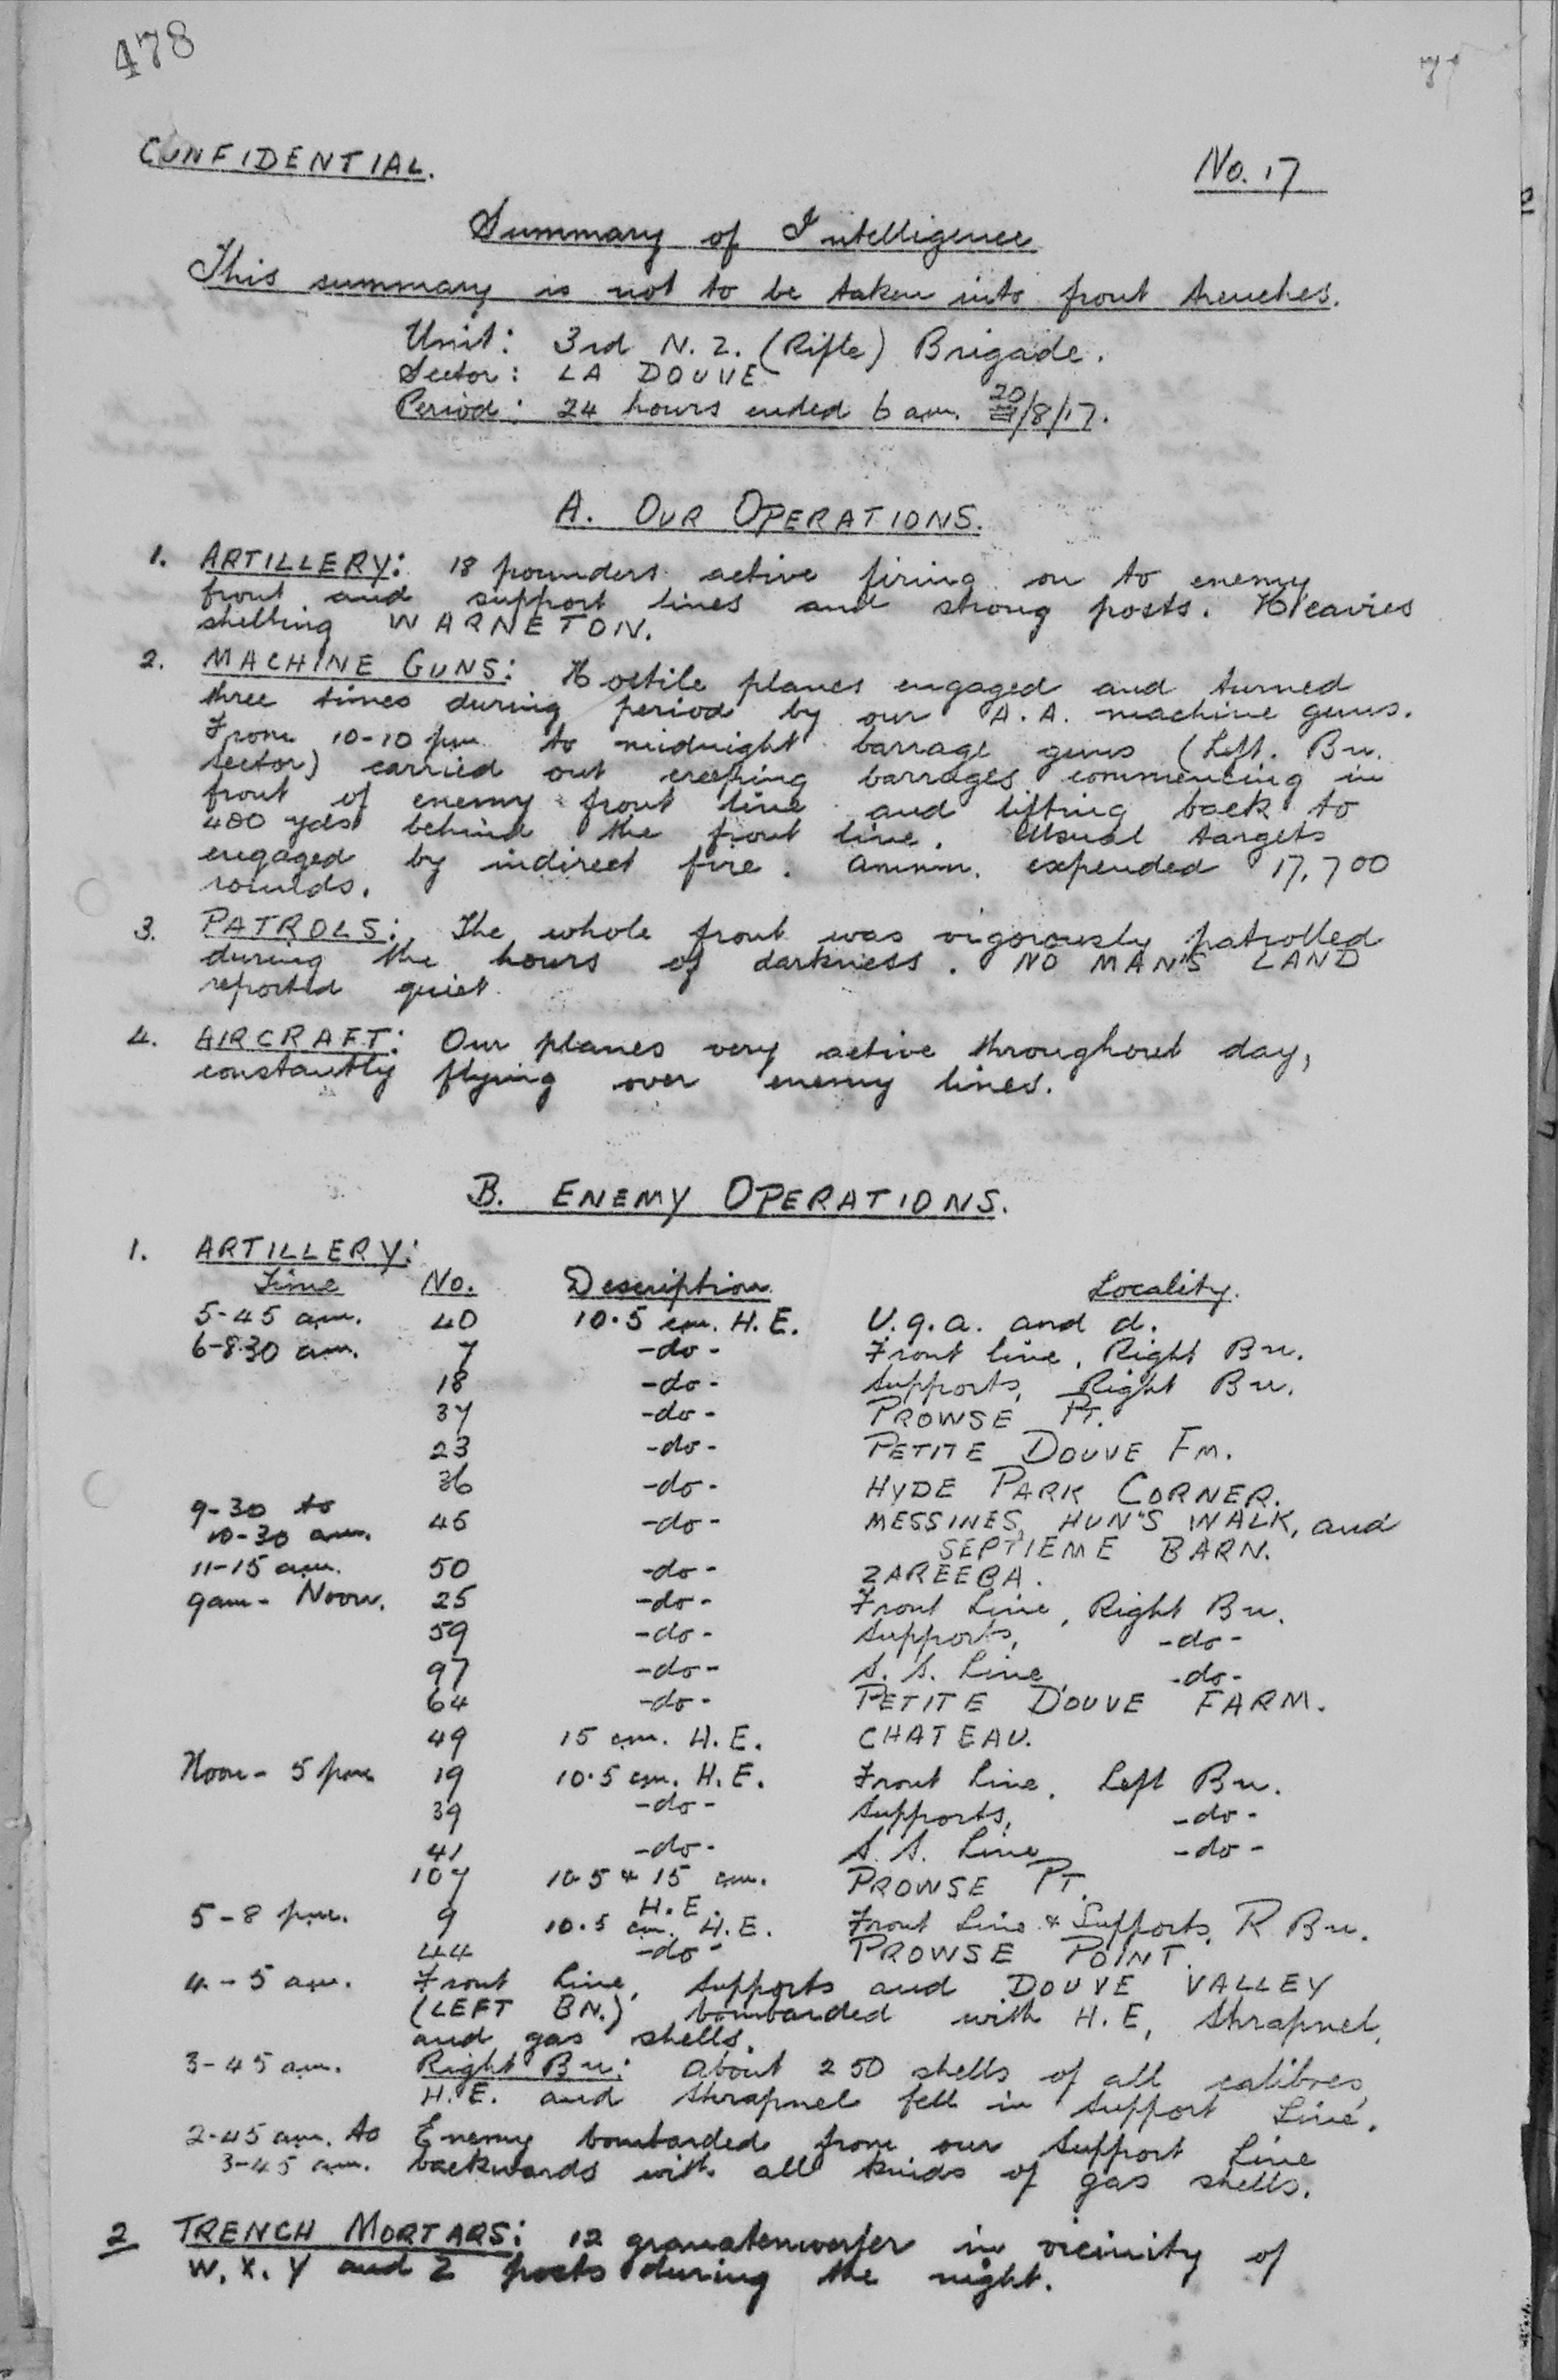 478
CONFIDENTIAL.
No. 17
Summary of Intelligence
This summary is not to be taken into front trenches.
Unit: 3rd N. Z. (Rifle) Brigade.
Sector: LA DOUVE
Period: 24 hours ended 6 am. 20/8/17.
A. OUR OPERATIONS.
1. ARTILLERY: 18 pounders active firing on to enemy
front and support lines and strong posts. Heavies
shelling WARNETON.
2. MACHINE GUNS: Hostile planes engaged and turned
three times during period by our A.A. machine guns.
From 10-10 pm to midnight barrage guns (Left. Bn.
sector) carried out creeping barrages commencing in
front of enemy front line and lifting back to
400 yds behind the front line. Usual targets
engaged by indirect fire. Ammn. expended 17,700
rounds.
3. PATROLS: The whole front was vigorously patrolled
during the hours of darkness. NO MAN'S LAND
reported quiet.
4. AIRCRAFT: Our planes very active throughout day,
constantly flying over enemy lines.
B. ENEMY OPERATIONS.
1. ARTILLERY:
Time No. Description Locality.
5-45 am. 40 10.5 cm. H.E. U.9.a. and d.
6-8.30 am. 7 -do- Front line, Right Bn.
18 -do- Supports, Right Bn.
37 -do- PROWSE PT.
23 -do- PETITE DOUVE FM.
36 -do- HYDE PARK CORNER.
9-30 to
10-30 am. 45 -do- MESSINES, HUN'S WALK, and
SEPTIEME BARN.
11-15 am. 50 -do- ZAREEBA.
9am - Noon. 25 -do- Front Line, Right Bn.
59 -do- Supports, -do-
97 -do- S.S. Line -do-
64 -do- PETITE DOUVE FARM.
49 15 cm. H.E. CHATEAU.
Noon - 5 pm 19 10.5 cm. H.E. Front Line, Left Bn.
39 -do- Supports, -do-
41 -do- S.S. Line -do-
107 10.5 & 15 cm. PROWSE PT.
H.E.
5-8 pm. 9 10.5 cm. H.E. Front Line & Supports, R Bn.
44 -do- PROWSE POINT.
4-5 am. Front Line, Supports and DOUVE VALLEY
(LEFT BN.) bombarded with H.E, Shrapnel,
and gas shells.
3-45 am. Right Bn: About 250 shells of all calibres,
H.E. and Shrapnel fell in Support Line.
2-45 am. to Enemy bombarded from our Support Line
3-45 am. backwards with all kinds of gas shells.
2 TRENCH MORTARS: 12 granatenwerfer in vicinity of
W, X, Y and Z posts during the night.